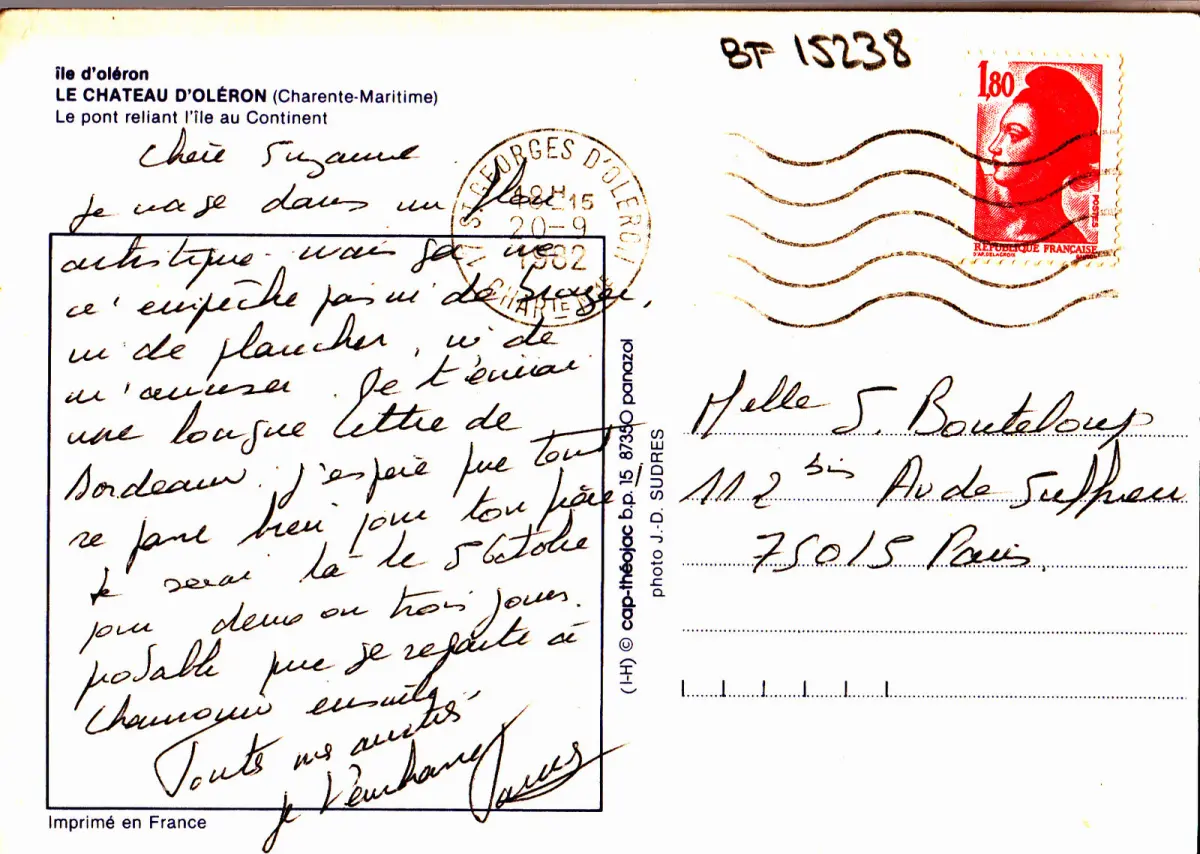 BF 15238
île d'oléron
LE CHATEAU D'OLÉRON (Charente-Maritime)
Le pont reliant l'île au Continent
1,80
POSTES
RÉPUBLIQUE FRANÇAISE
D'AP. DELACROIX
17 ST GEORGES D'OLERON
18H15
20-9
1982
CHARTE MME
Chère Suzanne
je nage dans un flou
artistique. mais ça ne
m'empêche pas ni de bronzer,
ni de plancher, ni de
m'amuser. Je t'écrirai
une longue lettre de
Bordeaux. j'espère que tout
se passe bien pour ton père!
Je serai là le 5 Octobre
pour deux ou trois jours.
probable que je reparte à
Chamonix ensuite.
Toutes mes amitiés
je t'embrasse
Melle S. Bouteloup
112 bis Av de Suffren
75015 Paris.
(I-H) © cap-théojac b.p. 15 87350 panazol
photo J.-D. SUDRES
Imprimé en France